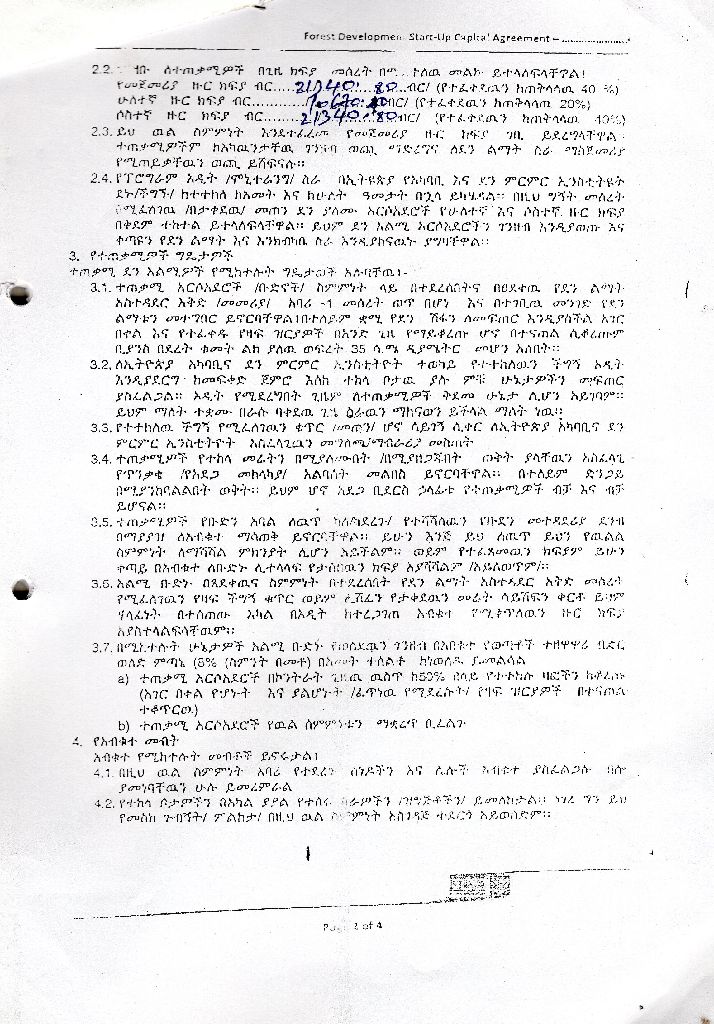 Forest Development Start-Up Capital Agreement – ....................
2.2. ለተጠቃሚዎች በጊዜ ክፍያ መሰረት መልኩ ይተላለፍላቸዋል፤
የመጀመሪያ ዙር ክፍያ ብር.....21340.80...ብር/ (የተፈቀደዉን ከጠቅላላዉ 40 %)
ሁለተኛ ዙር ክፍያ ብር............10670.40ብር/ (የተፈቀደዉን ከጠቅላላዉ 20%)
ሶስተኛ ዙር ክፍያ ብር.......21340.80ብር/ (የተፈቀደዉን ከጠቅላላዉ 40%)
2.3. ይህ ዉል ስምምነት እንደተፈፀመ የመጀመሪያ ዙር ክፍያ ገቢ ይደረግላቸዋል፡፡
ተጠቃሚዎችም ከአካዉንታቸዉ ገንዘብ ወጪ ማድረግና ለደን ልማት ስራ ማስጀመሪያ
የሚጠይቃቸዉን ወጪ ይሸፍናሉ፡፡
2.4. የፕሮግራም ኦዲት /ሞኒተሪንግ/ ስራ በኢትዮጵያ የአካባቢ እና ደን ምርምር ኢንስቲትዩት
ደኑ/ችግኙ/ ከተተከለ ከአመት እና ከሁለት ዓመታት በኋላ ይካሄዳል፡፡ በዚህ ግኝት መሰረት
የሚፈለገዉ /በታቀደዉ/ መጠን ደን ያለሙ አርሶአደሮች የሁለተኛ እና ሶስተኛ ዙር ክፍያ
በቀደም ተከተል ይተላለፍላቸዋል፡፡ ይህም ደን አልሚ አርሶአደሮችን ገንዘብ እንዲያወጡ እና
ቀጣዩን የደን ልማት እና እንክብካቤ ስራ እንዲያከናዉኑ ያግዛቸዋል፡፡
3. የተጠቃሚዎች ግዴታዎች
ተጠቃሚ ደን አልሚዎች የሚከተሉት ግዴታወች አሉባቸዉ፡-
3.1. ተጠቃሚ አርሶአደሮች /ቡድኖች/ ስምምነት ላይ በተደረሰበትና በፀደቀዉ የደን ልማት
አስተዳደር እቅድ /መመሪያ/ አባሪ -1 መሰረት ወጥ በሆነ እና በተገቢዉ መንገድ የደን
ልማቱን መተግበር ይኖርባቸዋል፤በተለይም ቋሚ የደን ሽፋን ለመፍጠር እንዲያስችል አገር
በቀል እና የተፈቀዱ የዛፍ ዝርያዎች በአንድ ጊዜ የማይቆረጡ ሆኖ በተናጠል ሲቆረጡም
ቢያንስ በደረት ቁመት ልክ ያለዉ ወፍረት 35 ሴ.ሜ ዲያሜትር መሆን አለበት፡፡
3.2. ለኢትዮጵያ አካባቢና ደን ምርምር ኢንስቲትዮት ተወካይ የተተከለዉን ችግኝ ኦዲት
እንዲያደርግ ከመፍቀድ ጀምሮ እስከ ተከላ ቦታዉ ያሉ ምቹ ሁኔታዎችን መፍጠር
ያስፈልጋል፡፡ ኦዲት የሚደረግበት ጊዜም ለተጠቃሚዎች ቅድመ ሁኔታ ሊሆን አይገባም፡፡
ይህም ማለት ተቋሙ በራሱ ባቀደዉ ጊዜ ስራዉን ማከናወን ይችላል ማለት ነዉ፡፡
3.3. የተተከለዉ ችግኝ የሚፈለገዉን ቁጥር /መጠን/ ሆኖ ሳይገኝ ሲቀር ለኢትዮጵያ አካባቢና ደን
ምርምር ኢንስቲትዮት አስፈላጊዉን መግለጫ/ማብራሪያ መስጠት
3.4. ተጠቃሚዎች የተከላ መሬትን በሚያለሙበት /በሚያዘጋጁበት ወቅት ያላቸዉን አስፈላጊ
የጥንቃቄ /የአደጋ መከላከያ/ አልባሳት መልበስ ይኖርባቸዋል፡፡ በተለይም ድንጋይ
በሚያንከባልሉበት ወቅት፡፡ ይህም ሆኖ አደጋ ቢደርስ ኃላፊቱ የተጠቃሚዎች ብቻ እና ብቻ
ይሆናል፡፡
3.5. ተጠቃሚዎች የቡድን አባል ለዉጥ ካለ/ካደረጉ/ የተሻሻለዉን የቡድን መተዳደሪያ ደንብ
በማያያዝ ለአብቁተ ማሳወቅ ይኖርባቸዋል፡፡ ይሁን እንጅ ይህ ለዉጥ ይህን የዉልል
ስምምነት ለማሻሻል ምክንያት ሊሆን አይችልም፡፡ ወይም የተፈጸመዉን ክፍያም ይሁን
ቀጣይ በአብቁተ ለቡድኑ ሊተላለፍ የታሰበዉን ክፍያ አያሻሽልም /አይለዉጥም/፡፡
3.6. አልሚ ቡድኑ በጸደቀዉና ስምምነት በተደረሰበት የደን ልማት አስተዳደር እቅድ መሰረት
የሚፈለገዉን የዛፍ ችግኝ ቁጥር ወይም ሽፋን የታቀደዉን መሬት ሳይሸፍን ቀርቶ ይህም
ሃላፊነት በተሰጠዉ አካል በኦዲት ከተረጋገጠ አብቁተ የሚቀጥለዉን ዙር ክፍያ
አያስተላልፍላቸዉም፡፡
3.7. በሚከተሉት ሁኔታዎች አልሚ ቡድኑ የወሰደዉን ገንዘብ በአበቁተ የወጣቶች ተዘዋዋሪ ብድር
ወለድ ምጣኔ (8% (ስምንት በመቶ) በአመት ተሰልቶ ከነወለዱ ይመልሳል
a) ተጠቃሚ አርሶአደሮች በኮንትራት ጊዜዉ ዉስጥ ከ50% በላይ የተተከሉ ዛፎችን ከቆረጡ
(አገር በቀል የሆኑት እና ያልሆኑት /ፈጥነዉ የሚደረሱት/ የዛፍ ዝርያዎች በተናጠል
ተቆጥርዉ)
b) ተጠቃሚ አርሶአደሮች የዉል ስምምነቱን ማቋረጥ ቢፈልጉ
4. የአብቁተ መብት
አብቁተ የሚከተሉት መብቶች ይኖሩታል፤
4.1. በዚህ ዉል ስምምነት አባሪ የተደረጉ ሰነዶችን እና ሌሎች አብቁተ ያስፈልጋሉ ብሎ
ያመነባቸዉን ሁሉ ይመረምራል
4.2. የተከላ ቦታዎችን በአካል ያያል የተሰሩ ስራዎችን /ዝግጅቶችን/ ይመለከታል፡፡ ነገረ ግን ይህ
የመስክ ጉብኝት/ ምልከታ/ በዚህ ዉል ስምምነት አስገዳጅ ተደርጎ አይወሰድም፡፡
Page 2 of 4